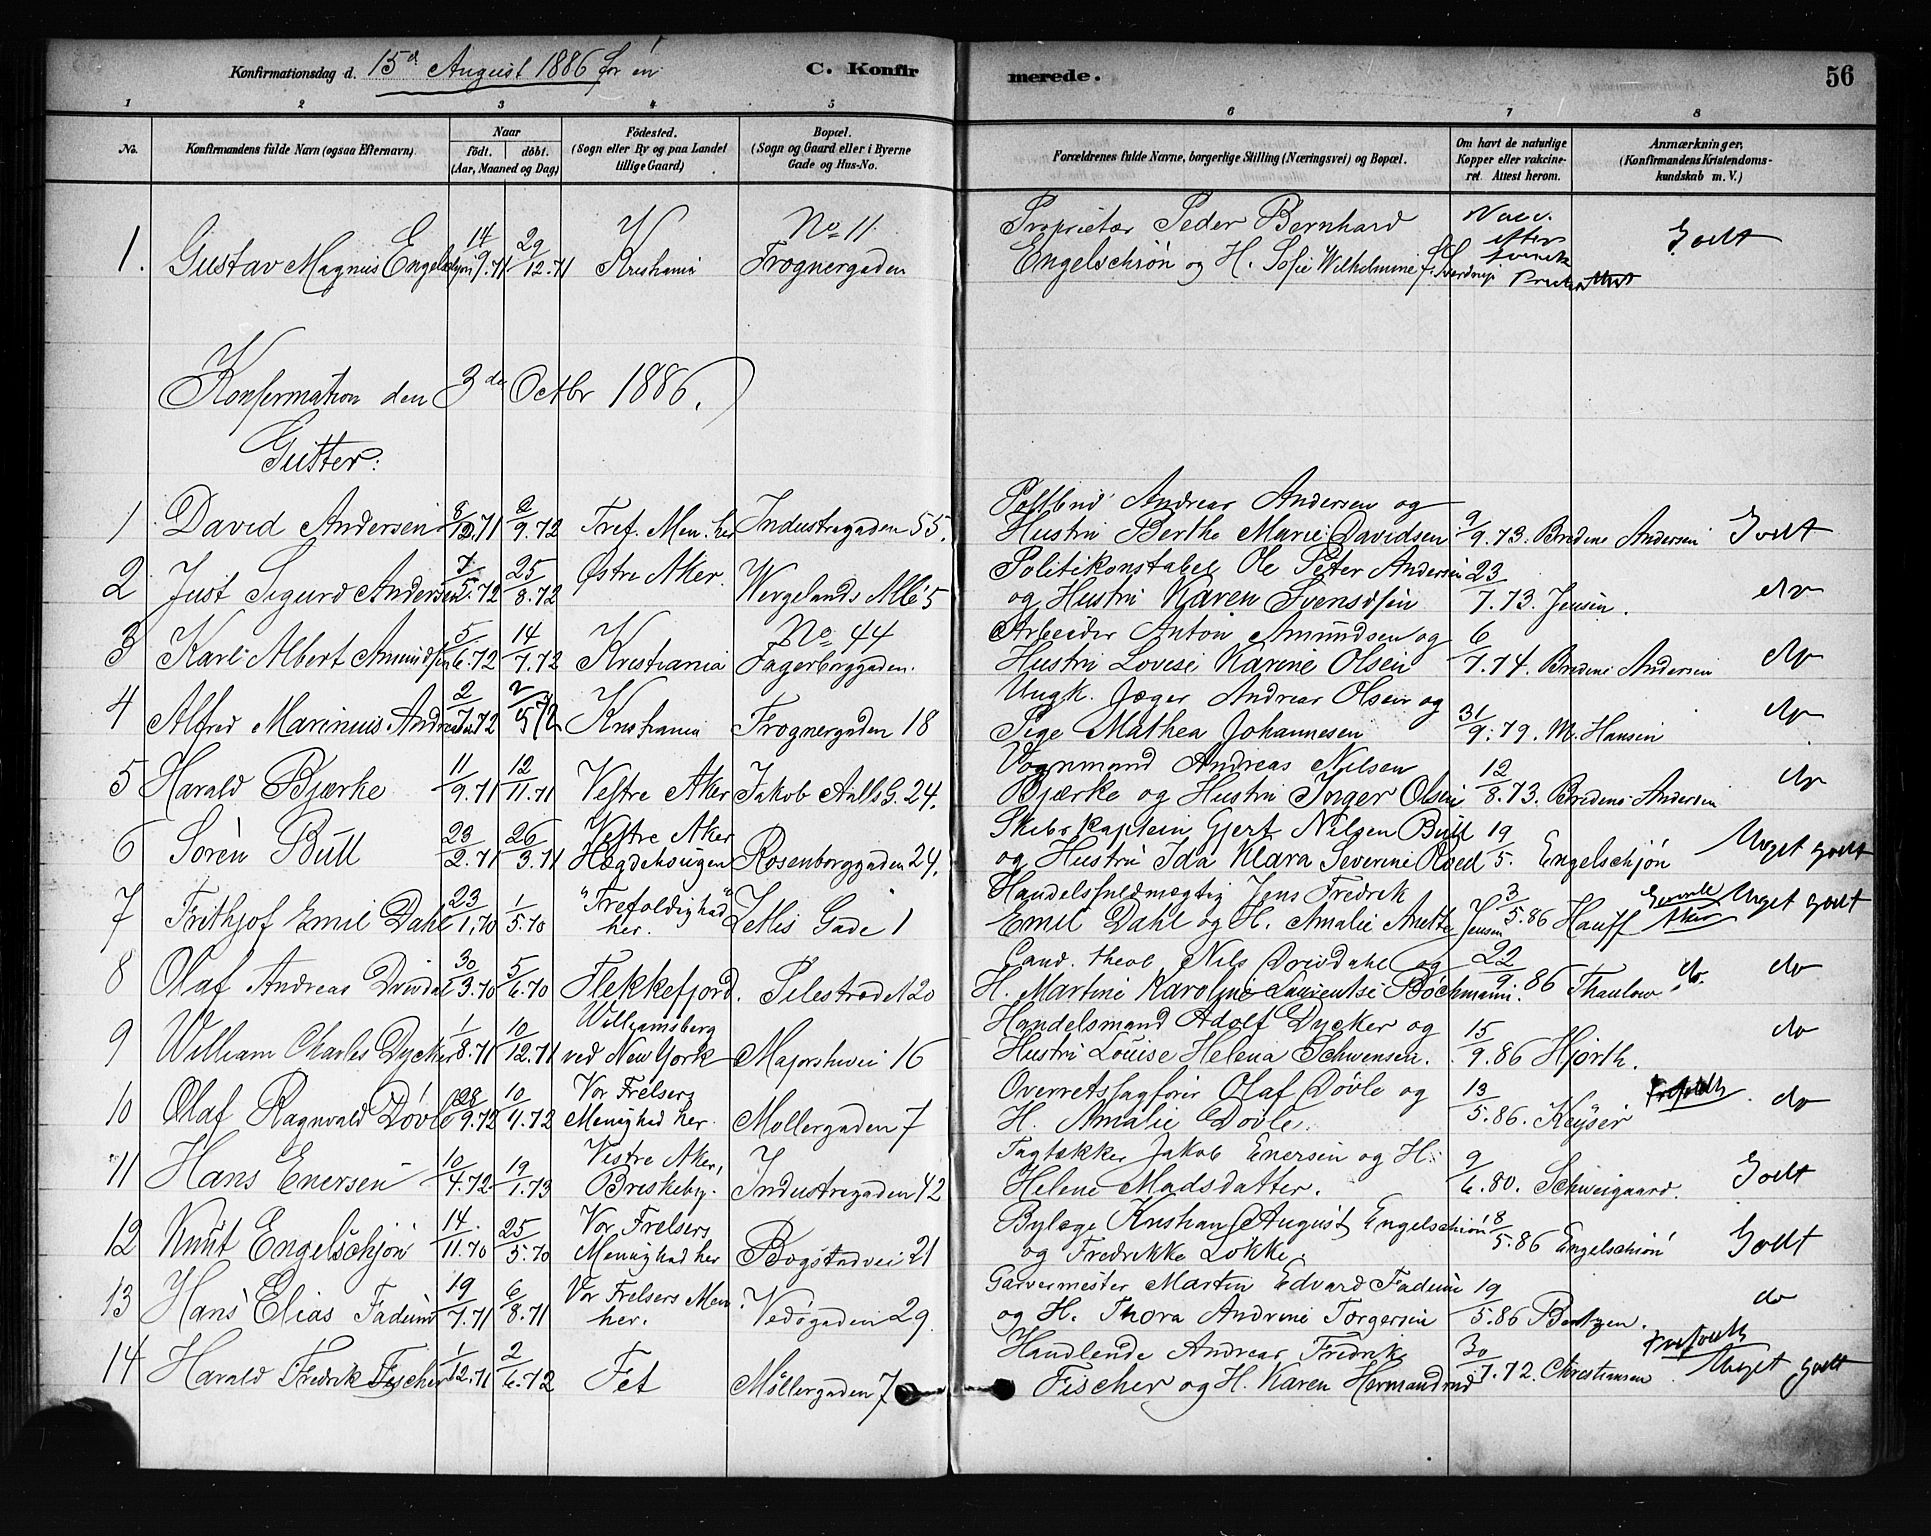 Konfirmationsdag d. 15d August 1886 for én
C. Konfirmerede.
56
1 2 3 4 5 6 7 8
No.
Konfirmandens fulde Navn (ogsaa Efternavn).
Naar
født. døbt.
(Aar, Maaned og Dag)
Fødested.
(Sogn eller By og paa Landet
tillige Gaard)
Bopæl.
(Sogn og Gaard eller i Byerne
Gade og Hus-No.
Forældrenes fulde Navne, borgerlige Stilling (Næringsvei) og Bopæl.
Om havt de naturlige
Kopper eller vakcine-
ret. Attest herom.
Anmærkninger,
(Konfirmandens Kristendoms-
kundskab m. V.)
No 11 Proprietær Peder Bernhard Vacc.
1. Gustav Magnus Engelschjøn 14/9.71 29/12.71 Kristiania Frognergaden Engelschiøn og H. Sofie Wilhelmine f. Sverdrup efter svensk Godt
Konfirmation den 3de Octbr 1886.
Gutter:
Postbud Andreas Andersen og
1. David Andersen 8/12.71 2/9.72 Tref. Men. her Industrigaden 55. Hustru Berthe Marie Davidsen 9/9.73. Bredene Andersen Godt
Politikonstabel Ole Peter Andersen
2 Just Sigurd Andersen 7/5.72 25/8.72 Østre Aker. Wergelands Allé 5 og Hustru Karen Svendsen 23/7.73. Jensen. do
No 44 Arbeider Anton Amundsen og
3 Karl Albert Amundsen 5/6.72 14/7.72 Kristiania Fagerborggaden. Hustru Lovise Karine Olsen 6/7.74. Bredene Andersen do
Ungk. Jæger Andreas Olsen og
4 Alfred Marinius Andreasen 2/7.72 Kristiania Frognergaden 18 Pige Mathea Johannesen 31/9.79. M. Hansen do
Vognmand Andreas Nilsen
5 Harald Bjærke 11/9.71 12/11.71 Vestre Aker Jakob Aalls G. 24. Bjærke og Hustru Inger Olsen 12/8.73. Bredene Andersen do
Vestre Aker Skibskaptein Gjert Nilsen Bull
6 Søren Bull 23/2.71 26/3.71 Hægdehaugen Rosenborggaden 24. og Hustru Ida Klara Severine Roed 19/5. Engelschjøn Meget godt
"Trefoldighed" Handelsfuldmægtig Jens Fredrik
7 Frithjof Emil Dahl 23/1.70 1/5.70 her. Zetlis Gade 1 Emil Dahl og H. Amalie Anette Jensen 3/5.86 Hauff Aker Meget godt
Cand. theol Nils Drivdahl og
8 Olaf Andreas Drivdal 30/3.70 5/6.70 Flekkefjord. Pilestrædet 20 H. Martine Karoline Laurentse Bøckmann. 22/9.86 Thaulow do. do
Williamsberg Handelsmand Adolf Dycker og
9 William Charles Dycker 1/8.71 10/12.71 ved New York Majorstuvei 16 Hustru Louise Helena Schwensen. 15/9.86 Hjorth. do
Vor Frelsers Overretssagfører Olaf Døvle og
10 Olaf Ragnvald Døvle 28/9.72 10/11.72 Menighed her. Møllergaden 7 H. Amalie Døvle. 13/5.86. Keyser Trefoldh. do
Vestre Aker, Tagtækker Jakob Enersen og H.
11 Hans Enersen 10/4.72 19/1.73 Briskeby. Industrigaden 42 Helene Madsdatter. 9/6.80. Schweigaard. Godt
Vor Frelsers Bylæge Kristian August Engelschiøn
12 Knut Engelschjøn 14/11.70 25/5.70 Menighed her Bogstadvei 21 og Fredrikke Løkke. 8/5.86 Engelschiøn Godt
Vor Frelsers Men. Garvermester Martin Edvard Fadum
13 Hans Elias Fadum 19/7.71 6/8.71 her. Vedøgaden 29 og H. Thora Andrine Torgersen 19/5.86 Bentzen. do
Handlende Andreas Fredrik
14 Harald Fredrik Fischer 1/12.71 2/6.72 Fet Møllergaden 7 Fischer og H. Karen Hermandrud 30/7.72. Christiansen Trefoldh Meget godt